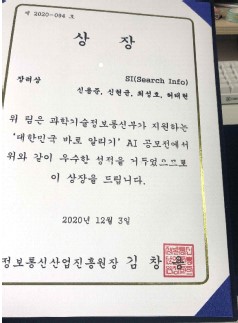 제 2020-094 호
상 장
장려상 SI(Search Info)
신용준, 신현균, 최성호, 허태현
위 팀은 과학기술정보통신부가 지원하는
'대한민국 바로 알리기' AI 공모전에서
위와 같이 우수한 성적을 거두었으므로
이 상장을 드립니다.
2020년 12월 3일
정보통신산업진흥원장 김 창 용